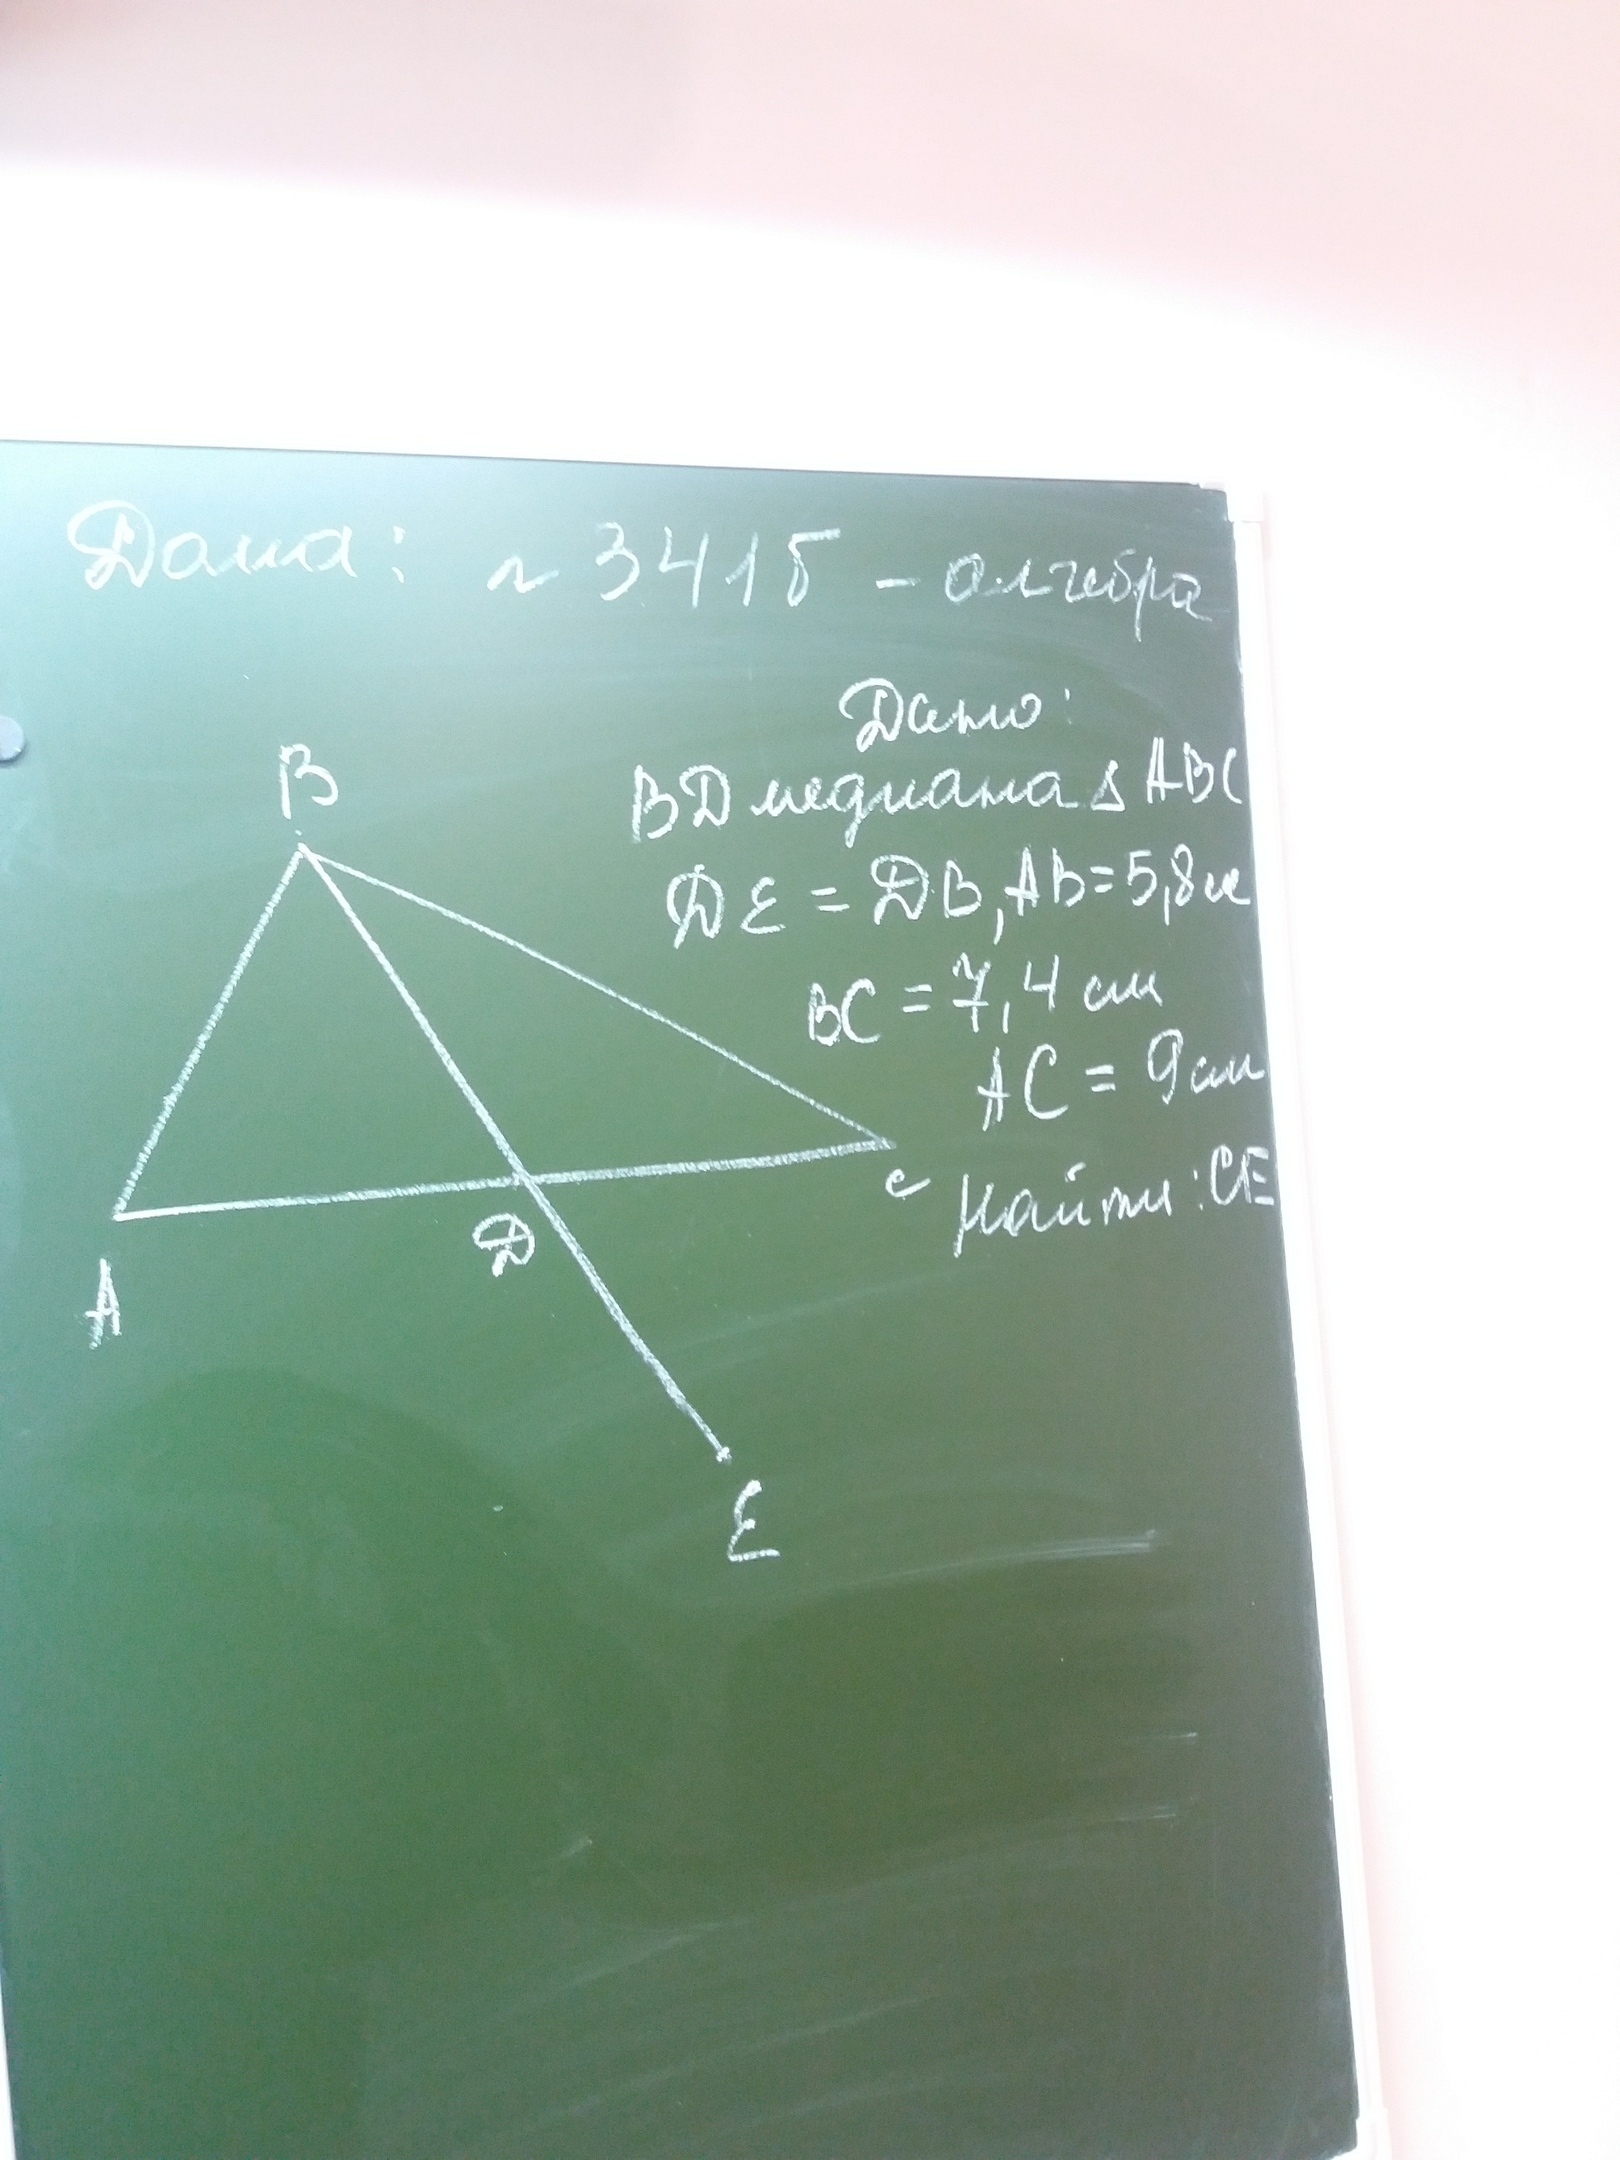 Дома: № 341б - алгебра
Дано:
BD медиана Δ ABC
DE = DB, AB = 5,8 см
BC = 7,4 см
AC = 9 см
Найти: CE
B
A
D
C
E